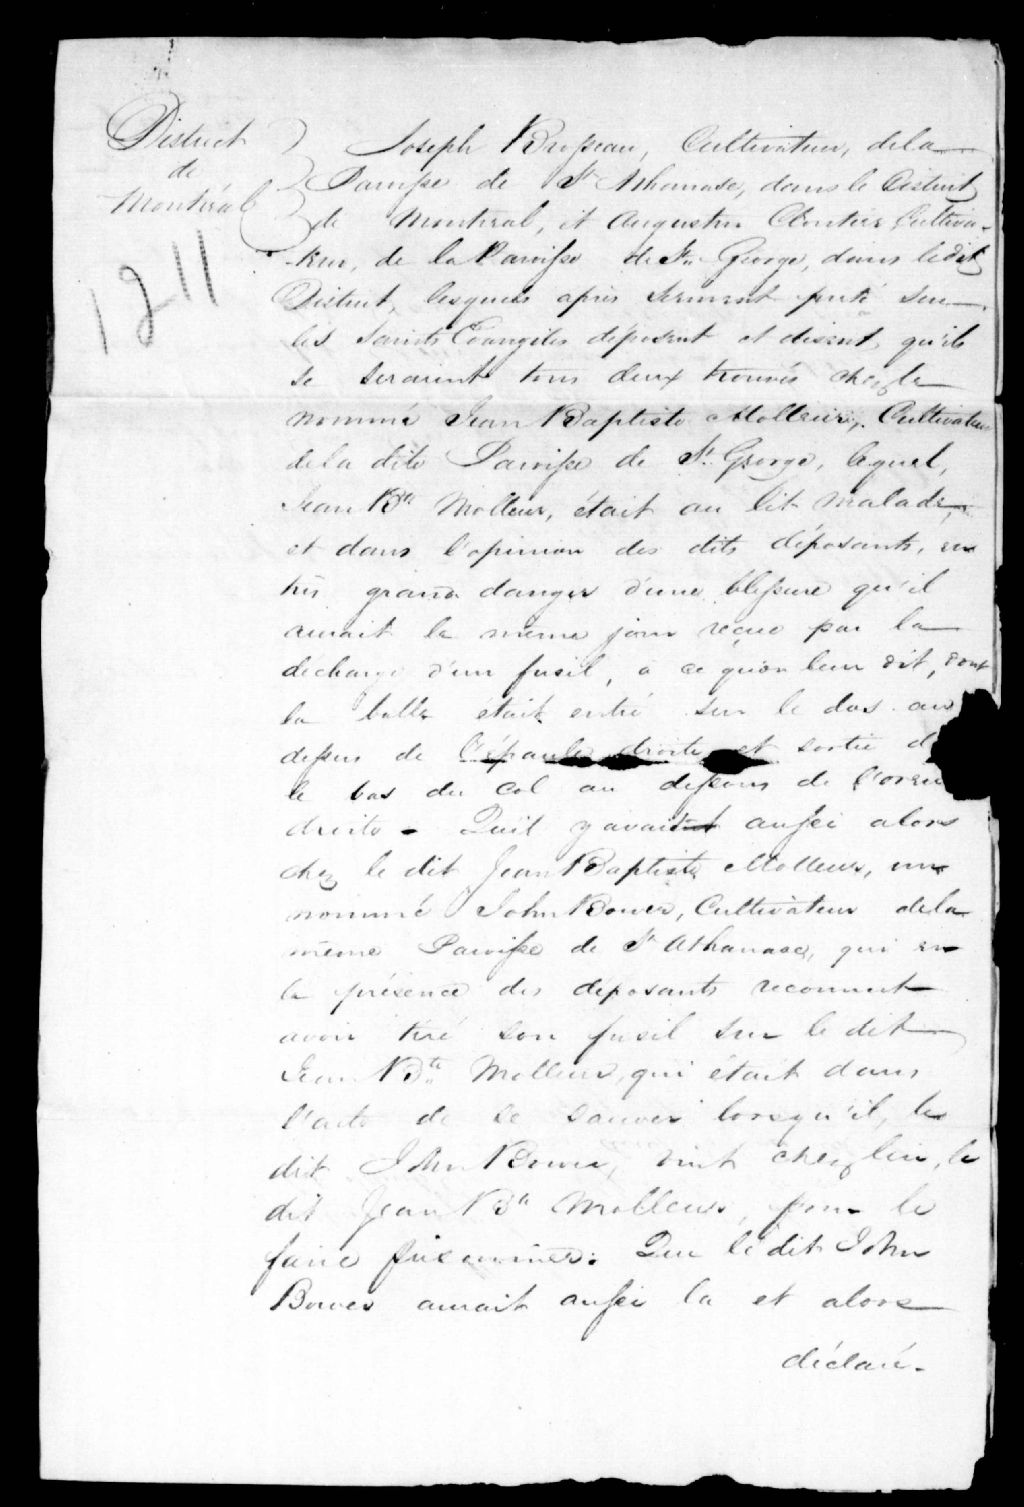 District
de
Montréal
1211
Joseph Brosseau, Cultivateur, de la
Paroisse de St Athanase, dans le District
de Montréal, et Augustin Cloutier Cultiva-
teur, de la Paroisse de St. George, dans le dit
District, lesquels après serment prêté sur
les Saints Evangiles déposent et disent, qu'ils
se seraient tous deux trouvés chez le
nommé Jean Baptiste Molleur, Cultivateur
de la dite Paroisse de St. George, lequel,
Jean Bte Molleur, était au lit malade,
et dans l'opinion des dits déposants, en
très grand danger d'une blessure qu'il
aurait le même jour reçue par la
décharge d'un fusil, a ce qu'on leur dit, dont
la balle était entré sur le dos au
dessus de l'épaule droite et sortie d
le bas du col au dessous de l'oreil
droite - Qu'il y avait aussi alors
chez le dit Jean Baptiste Molleur, un
nommé John Bower, Cultivateur de la
même Paroisse de St Athanase, qui en
la présence des déposants reconnut
avoir tiré son fusil sur le dit
Jean Bte Molleur, qui était dans
l'acte de se sauver lorsqu'il, le
dit John Bower, vint chez lui, le
dit Jean Bte Molleur, pour le
faire prisonnier. Que le dit John
Bower aurait aussi la et alors
déclaré -